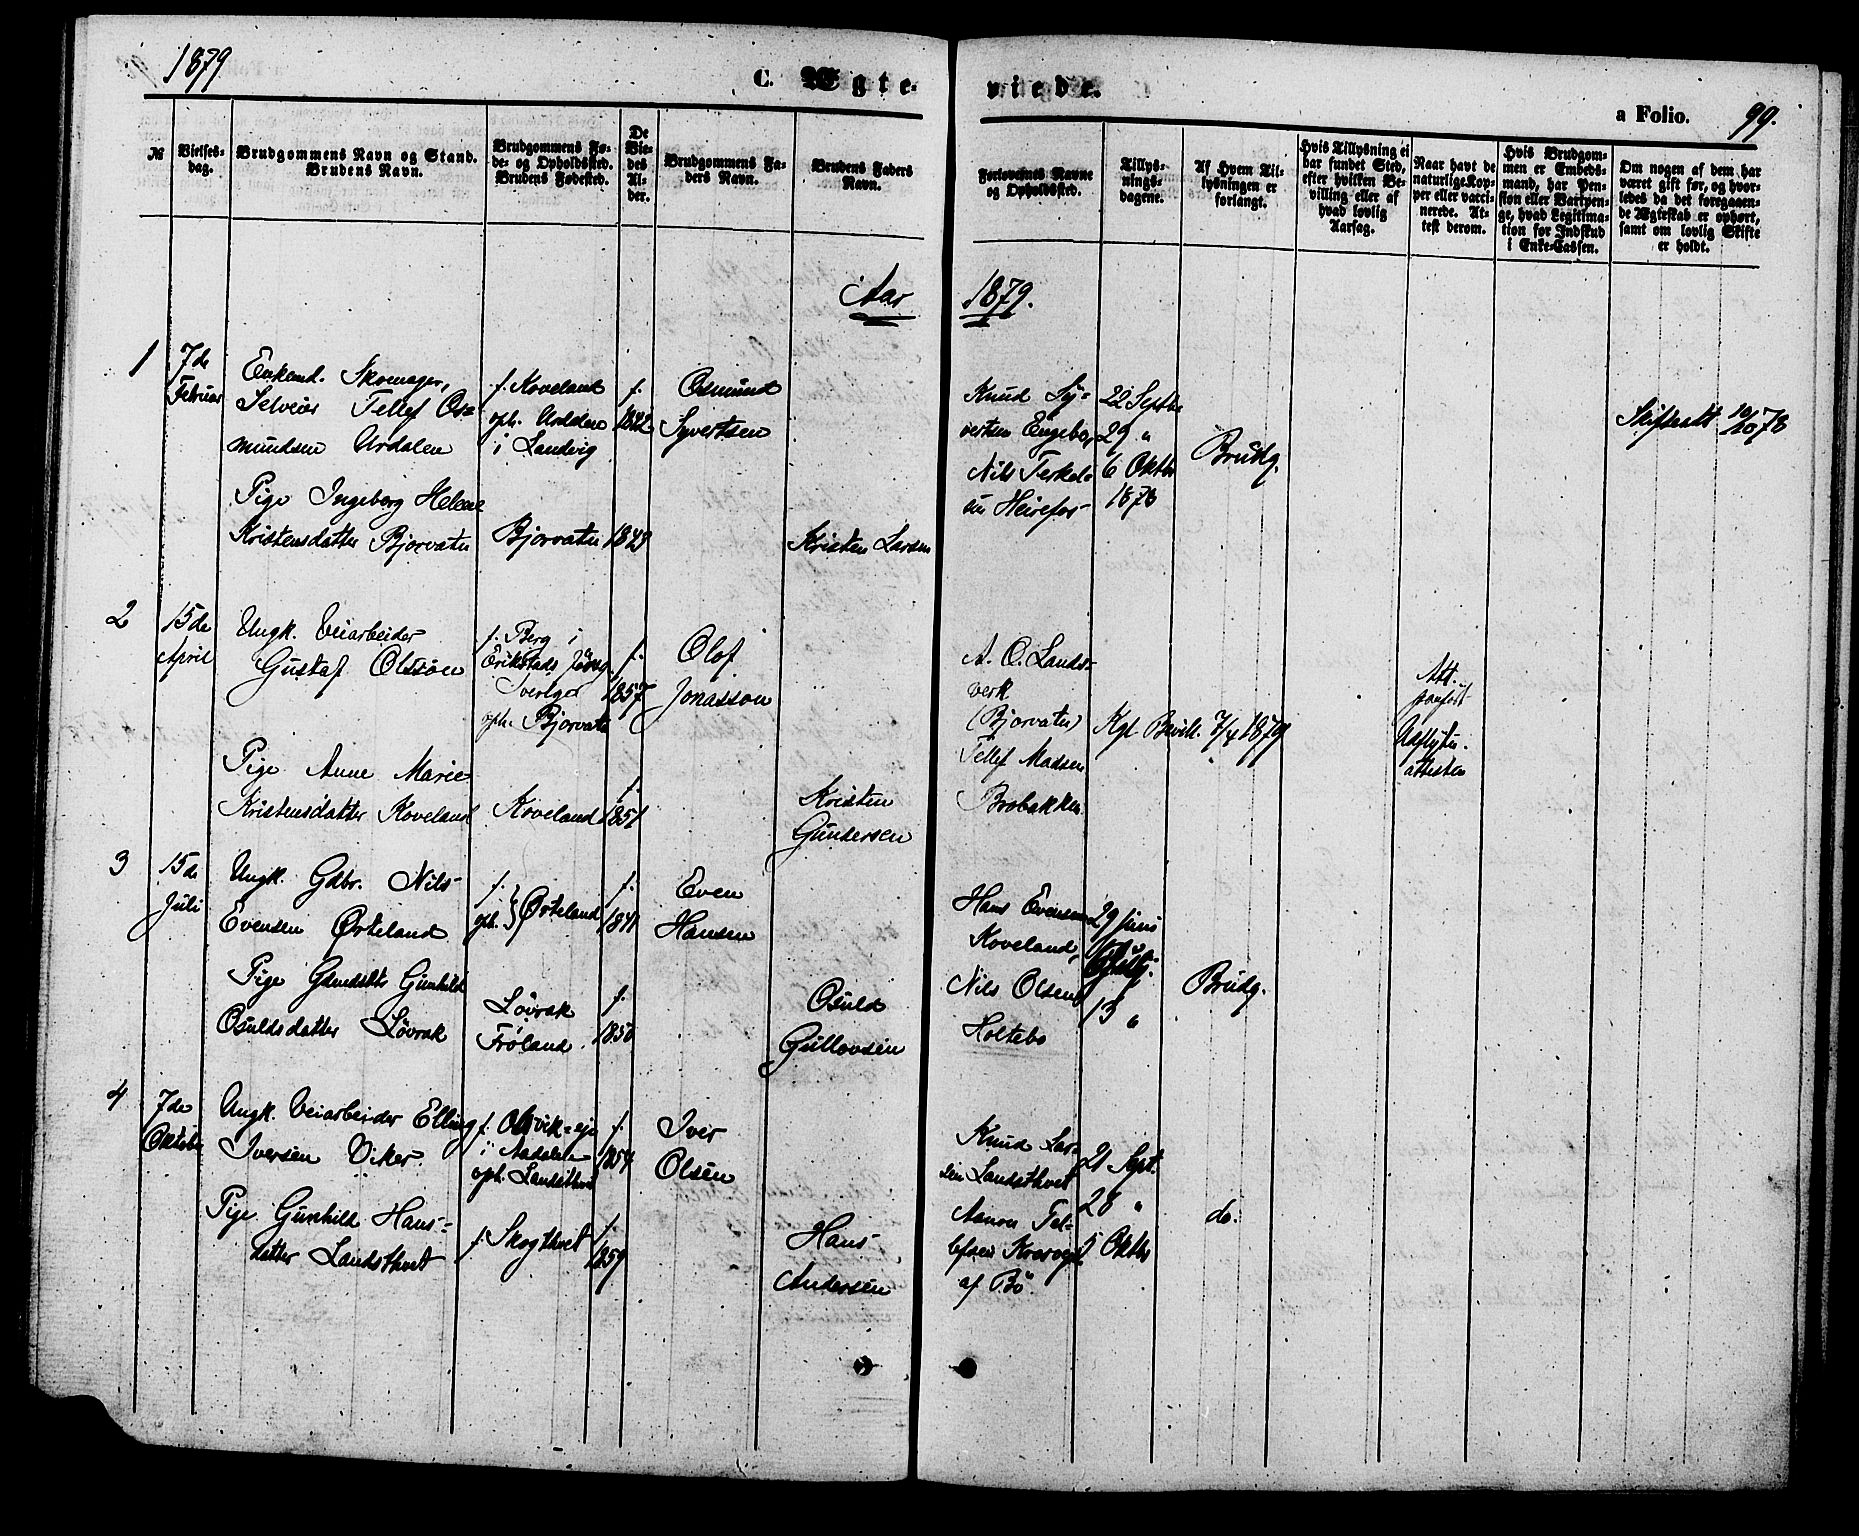 1879
C. Ægte-
viede.
a Folio. 99.
№
Vielses-
dag.
Brudgommens Navn og Stand.
Brudens Navn.
Brudgommens Fø-
de- og Opholdssted.
Brudens Fødested.
De
Vie-
des
Al-
der.
Brudgommens Fa-
ders Navn.
Brudens Faders
Navn.
Forlovernes Navne
og Opholdssted.
Tillys-
nings-
dagene.
Af Hvem Til-
lysningen er
forlangt.
Hvis Tillysning ei
har fundet Sted,
efter hvilken Be-
villing eller af
hvad lovlig
Aarsag.
Naar havt de
naturlige Kop-
per eller vacci-
nerede. At-
test derom.
Hvis Brudgom-
men er Embeds-
mand, har Pen-
sion eller Vartpen-
ge, hvad Legitima-
tion for Indskud
i Enke-Cassen.
Om nogen af dem har
været gift før, og hvor-
ledes da det foregaaen-
de Ægteskab er ophørt,
samt om lovlig Skifte
er holdt.
Aar 1879.
1
7de
Februar
Enkemd. Skomager,
Selveier Tellef Os-
mundsen Urdalen
f. Koveland
oph. Urdalen
i Landvig
f.
1842
Osmund
Syvertsen
Knud Sy-
vertsen Engebo,
Nils Terkels-
en Heirefos
22 Septbr
29 "
6 Oktbr
1878
Brudg.
Skifteatt 10/10 78
Pige Ingeborg Helene
Kristensdatter Bjorvatn
Bjorvatn
1849
Kristen Larsen
2
15de
April
Ungk. Veiarbeider
Gustaf Olsson
f. Berg i
Erikstads
Sverige
oph. Bjorvatn
f.
1857
Olof
Jonasson
A. O. Lands-
verk
(Bjorvatn)
Tellef Madsen
Brobakken
Kgl Bevill. 7/4 1879
Att.
Udflytn.
attesten
Pige Anne Marie
Kristensdatter Koveland
Koveland
f.
1851
Kristen
Gundersen
3
15de
Juli
Ungk. Gdbr. Nils
Evensen Ørteland
f.
oph. } Ørteland
f.
1841
Even
Hansen
Hans Evensen
Koveland,
Nils Olsen
Holtebo
29 Juni
13 "
Brudg.
Pige Gunhild
Osuldsdatter Løvrak
Løvrak
Froland.
f.
1850
Osuld
Gullovsen
4
7de
Oktober
Ungk. Veiarbeider Elling
Iversen Viker
f.
i Aadalen
oph. Landsthvet
f.
1854
Iver
Olsen
Knud Lar-
sen Landsthvet
Aanon Tel-
lefsen
af Bø.
21 Sept.
28 "
5 Oktbr
do.
Pige Gunhild Hans-
datter Landsthvet
f. Skogthvet
f.
1859
Hans
Andersen